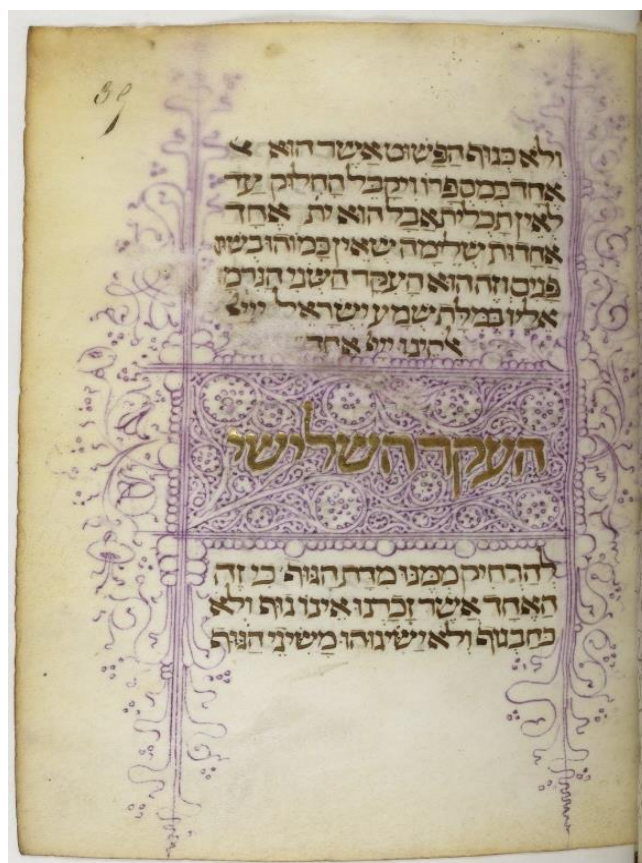 39
ולא כגוף הפשוט אשר הוא
אחד במספרו ויקבל החלוק עד
לאין תכלית אבל הוא ית׳ אחד
אחדות שלימה שאין כמוהו בשום
פנים וזה הוא העקר השני הנרמ
אליו במלת שמע ישראל ייי
אלהינו ייי אחד
העקר השלישי
להרחיק ממנו מדת הגוף כי זה
האחד אשר זכרנו אינו גוף ולא
כח בגוף ולא ישיגוהו משיגי הגוף